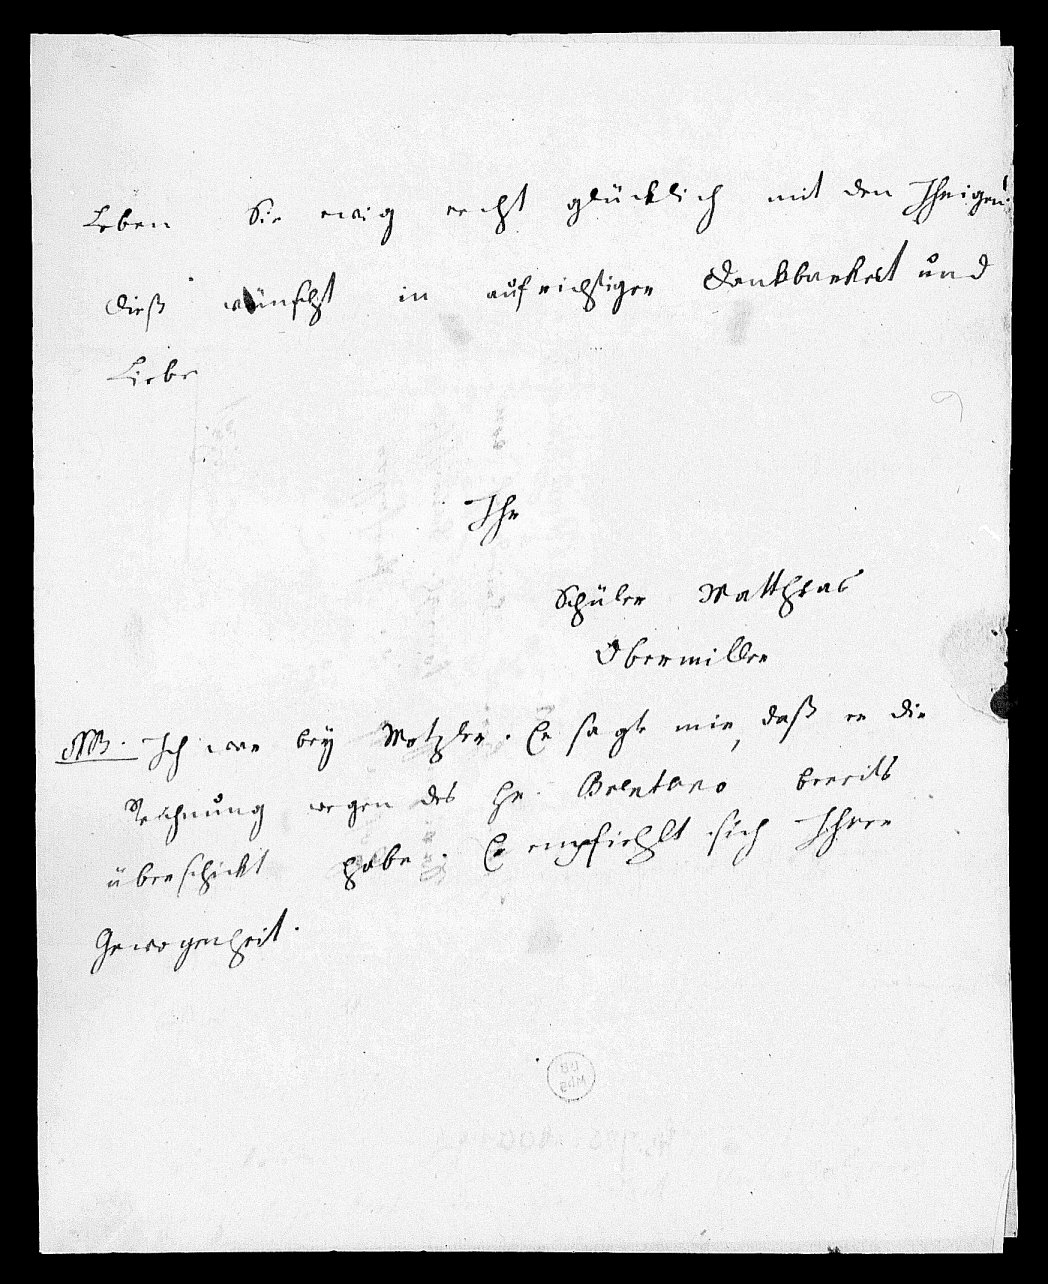 Leben Sie ewig recht glücklich mit den Ihrigen.
Dieß wünscht in aufrichtiger Dankbarkeit und
Liebe
Ihr
Schüler Matthias
Obermiller
NB. Ich war bey Metzler. Er sagte mir, daß er die
Rechnung wegen des Hr. Brentano bereits
überschickt habe. Er empfiehlt sich Ihrer
Gewogenheit.